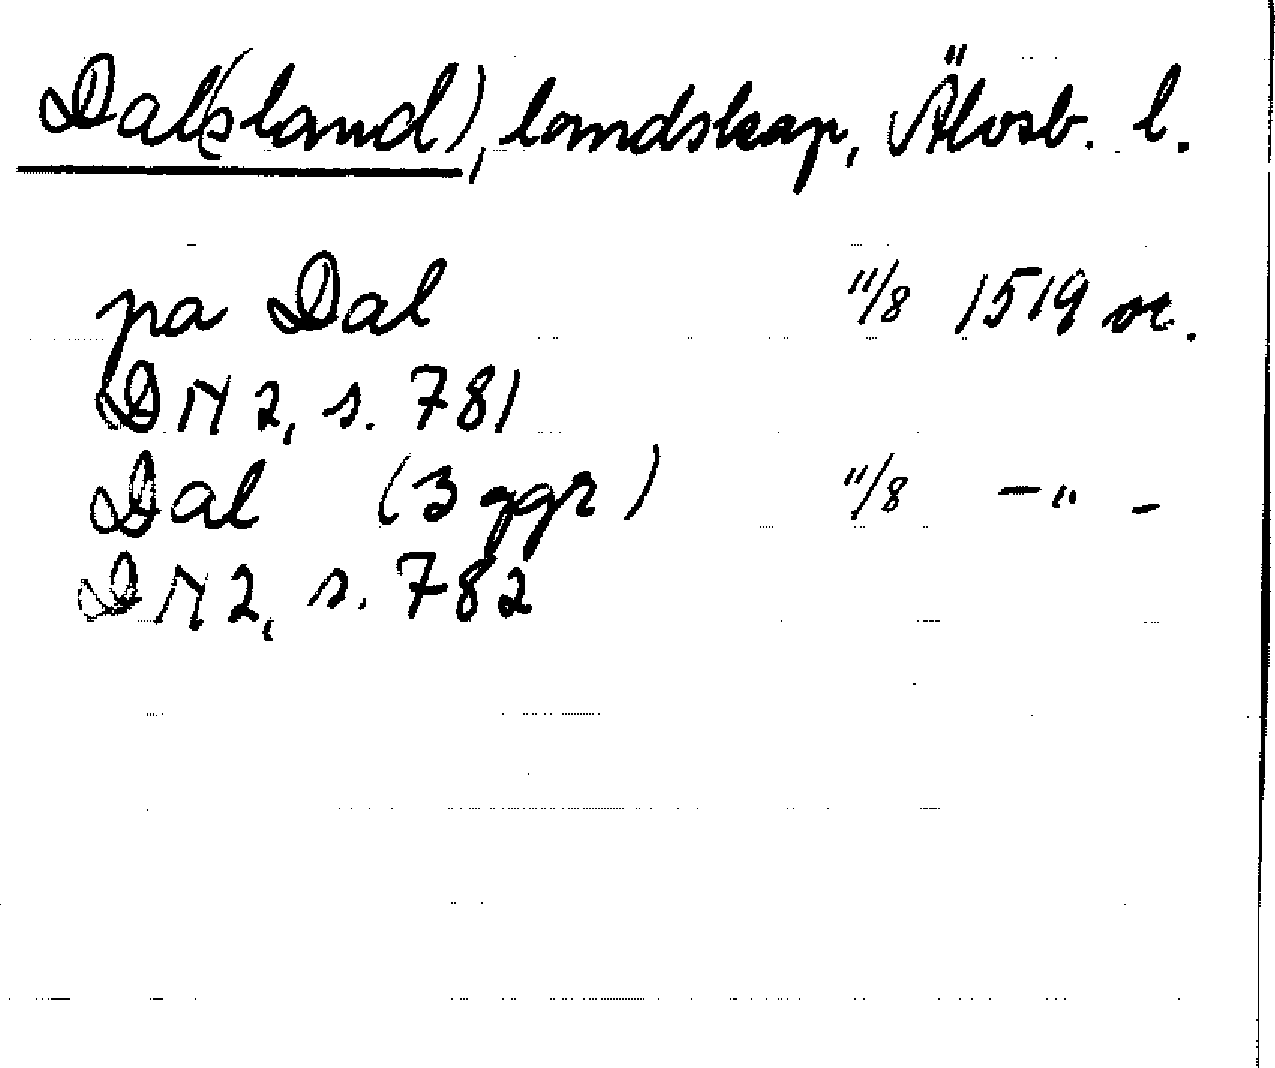 Dal(sland), landskap, Älvsb. l.
pa Dal 11/8 1519 or.
DN 2, s. 781
Dal (3 ggr) 11/8 –"–
DN 2, s. 782